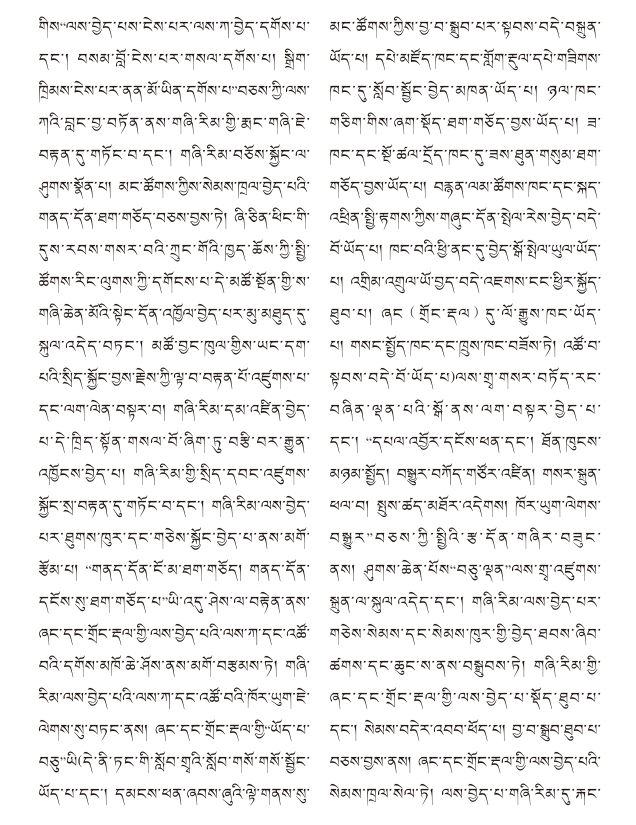 གིས“ལས་བྱེད་པས་ངེས་པར་ལས་ཀ་བྱེད་དགོས་པ་
དང་། བསམ་བློ་ངེས་པར་གསལ་དགོས་པ། སྒྲིག་
ཁྲིམས་ངེས་པར་ནན་མོ་ཡིན་དགོས་པ”བཅས་ཀྱི་ལས་
ཀའི་བླང་བྱ་བཏོན་ནས་གཞི་རིམ་གྱི་རྨང་གཞི་ཇེ་
བརྟན་དུ་གཏོང་བ་དང་། གཞི་རིམ་བཅོས་སྐྱོང་ལ་
ཤུགས་སྣོན་པ། མང་ཚོགས་ཀྱིས་སེམས་ཁྲལ་བྱེད་པའི་
གནད་དོན་ཐག་གཅོད་བཅས་བྱས་ཏེ། ཞི་ཅིན་ཕིང་གི་
དུས་རབས་གསར་བའི་ཀྲུང་གོའི་ཁྱད་ཆོས་ཀྱི་སྤྱི་
ཚོགས་རིང་ལུགས་ཀྱི་དགོངས་པ་དེ་མཚོ་སྔོན་གྱི་ས་
གཞི་ཆེན་མོའི་སྟེང་དོན་འཁྱོལ་བྱེད་པར་མུ་མཐུད་དུ་
སྐུལ་འདེད་བཏང་། མཚོ་བྱང་ཁུལ་གྱིས་ཡང་དག་
པའི་སྲིད་སྐྱོང་བྱས་རྗེས་ཀྱི་ལྟ་བ་བརྟན་པོ་འཛུགས་པ་
དང་ལག་ལེན་བསྟར་བ། གཞི་རིམ་དམ་འཛིན་བྱེད་
པ་དེ་ཁྲིད་སྟོན་གསལ་བོ་ཞིག་ཏུ་བརྩི་བར་རྒྱུན་
འཁྱོངས་བྱེད་པ། གཞི་རིམ་གྱི་སྲིད་དབང་འཛུགས་
སྐྱོང་སྲ་བརྟན་དུ་གཏོང་བ་དང་། གཞི་རིམ་ལས་བྱེད་
པར་ཐུགས་ཁུར་དང་གཅེས་སྐྱོང་བྱེད་པ་ནས་མགོ་
རྩོམ་པ། “གནད་དོན་ངོ་མ་ཐག་གཅོད། གནད་དོན་
དངོས་སུ་ཐག་གཅོད་པ”ཡི་འདུ་ཤེས་ལ་བརྟེན་ནས་
ཞང་དང་གྲོང་རྡལ་གྱི་ལས་བྱེད་པའི་ལས་ཀ་དང་འཚོ་
བའི་དགོས་མཁོ་ཆེ་ཤོས་ནས་མགོ་བརྩམས་ཏེ། གཞི་
རིམ་ལས་བྱེད་པའི་ལས་ཀ་དང་འཚོ་བའི་ཁོར་ཡུག་ཇེ་
ལེགས་སུ་བཏང་ནས། ཞང་དང་གྲོང་རྡལ་གྱི“ཡོད་པ་
བཅུ”ཡི(དེ་ནི་ཏང་གི་སློབ་གྲྭའི་སློབ་གསོ་གསོ་སྦྱོང་
ཡོད་པ་དང་། དམངས་ཕན་ཞབས་ཞུའི་ལྟེ་གནས་སུ་
མང་ཚོགས་ཀྱིས་བྱ་བ་སྒྲུབ་པར་སྟབས་བདེ་བསྐྲུན་
ཡོད་པ། དཔེ་མཛོད་ཁང་དང་གློག་རྡུལ་དཔེ་གཟིགས་
ཁང་དུ་སློབ་སྦྱོང་བྱེད་མཁན་ཡོད་པ། ཉལ་ཁང་
གཅིག་གིས་ཞག་སྡོད་ཐག་གཅོད་བྱས་ཡོད་པ། ཟ་
ཁང་དང་སྔོ་ཚལ་དྲོད་ཁང་དུ་ཟས་ཐུན་གསུམ་ཐག་
གཅོད་བྱས་ཡོད་པ། བརྙན་ལམ་ཚོགས་ཁང་དང་སྐད་
འཕྲིན་སྤྱི་རྟགས་ཀྱིས་གཞུང་དོན་སྤེལ་རེས་བྱེད་བདེ་
བོ་ཡོད་པ། ཁང་བའི་ཕྱི་ནང་དུ་བྱེད་སྒོ་སྤེལ་ཡུལ་ཡོད་
པ། འགྲིམ་འགྲུལ་ཡོ་བྱད་བདེ་འཇགས་ངང་ཕྱིར་སྐྱོད་
ཐུབ་པ། ཞང（གྲོང་རྡལ）དུ་ལོ་རྒྱུས་ཁང་ཡོད་
པ། གསང་སྤྱོད་ཁང་དང་ཁྲུས་ཁང་བཟོས་ཏེ། འཚོ་བ་
སྟབས་བདེ་བོ་ཡོད་པ)ལས་གྲྭ་གསར་བཏོད་རང་
བཞིན་ལྡན་པའི་སྒོ་ནས་ལག་བསྟར་བྱེད་པ་
དང་། “དཔལ་འབྱོར་དངོས་ཕན་དང་། ཐོན་ཁུངས་
མཉམ་སྤྱོད། བསྒྱུར་བཀོད་གཙོར་འཛིན། གསར་སྐྲུན་
ཕལ་བ། སྤུས་ཚད་མཐོར་འདེགས། ཁོར་ཡུག་ལེགས་
བསྒྱུར”བཅས་ཀྱི་སྤྱིའི་རྩ་དོན་གཞིར་བཟུང་
ནས། ཤུགས་ཆེན་པོས“བཅུ་ལྡན”ལས་གྲྭ་འཛུགས་
སྐྲུན་ལ་སྐུལ་འདེད་དང་། གཞི་རིམ་ལས་བྱེད་པར་
གཅེས་སེམས་དང་སེམས་ཁུར་གྱི་བྱེད་ཐབས་ཞིབ་
ཚགས་དང་ཆུང་ས་ནས་བསྒྲུབས་ཏེ། གཞི་རིམ་གྱི་
ཞང་དང་གྲོང་རྡལ་གྱི་ལས་བྱེད་པ་སྡོད་ཐུབ་པ་
དང་། སེམས་བདེར་འབབ་ཕོད་པ། བྱ་བ་སྒྲུབ་ཐུབ་པ་
བཅས་བྱས་ནས། ཞང་དང་གྲོང་རྡལ་གྱི་ལས་བྱེད་པའི་
སེམས་ཁྲལ་སེལ་ཏེ། ལས་བྱེད་པ་གཞི་རིམ་དུ་རྐང་